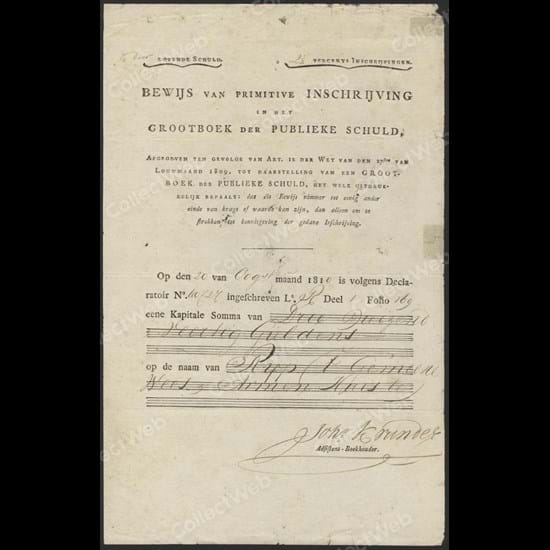 LOPENDE SCHULD.
VERCENTS INSCHRIJVINGEN.
BEWIJS VAN PRIMITIVE INSCHRIJVING
IN HET
GROOTBOEK DER PUBLIEKE SCHULD,
AFGEGEVEN TEN GEVOLGE VAN ART. 12 DER WET VAN DEN 27sten VAN
LOUWMAAND 1809, TOT DAARSTELLING VAN EEN GROOT-
BOEK DER PUBLIEKE SCHULD, HET WELK UITDRUK-
KELIJK BEPAALT: dat dit Bewijs nimmer tot eenig ander
einde van kragt of waarde kan zijn, dan alleen om te
strekken tot kennisgeving der gedane Inschrijving.
Op den 20 van Oogst maand 1810 is volgens Decla-
ratoir No. ingeschreven La. R Deel 1 Folio 169
eene Kapitale Somma van Drie Duizend
Veertig Guldens
op de naam van Ryp ('t Gemeene
Wees & Armen Huis te)
Johs. Krunder
Adsistent-Boekhouder.
CollectWeb